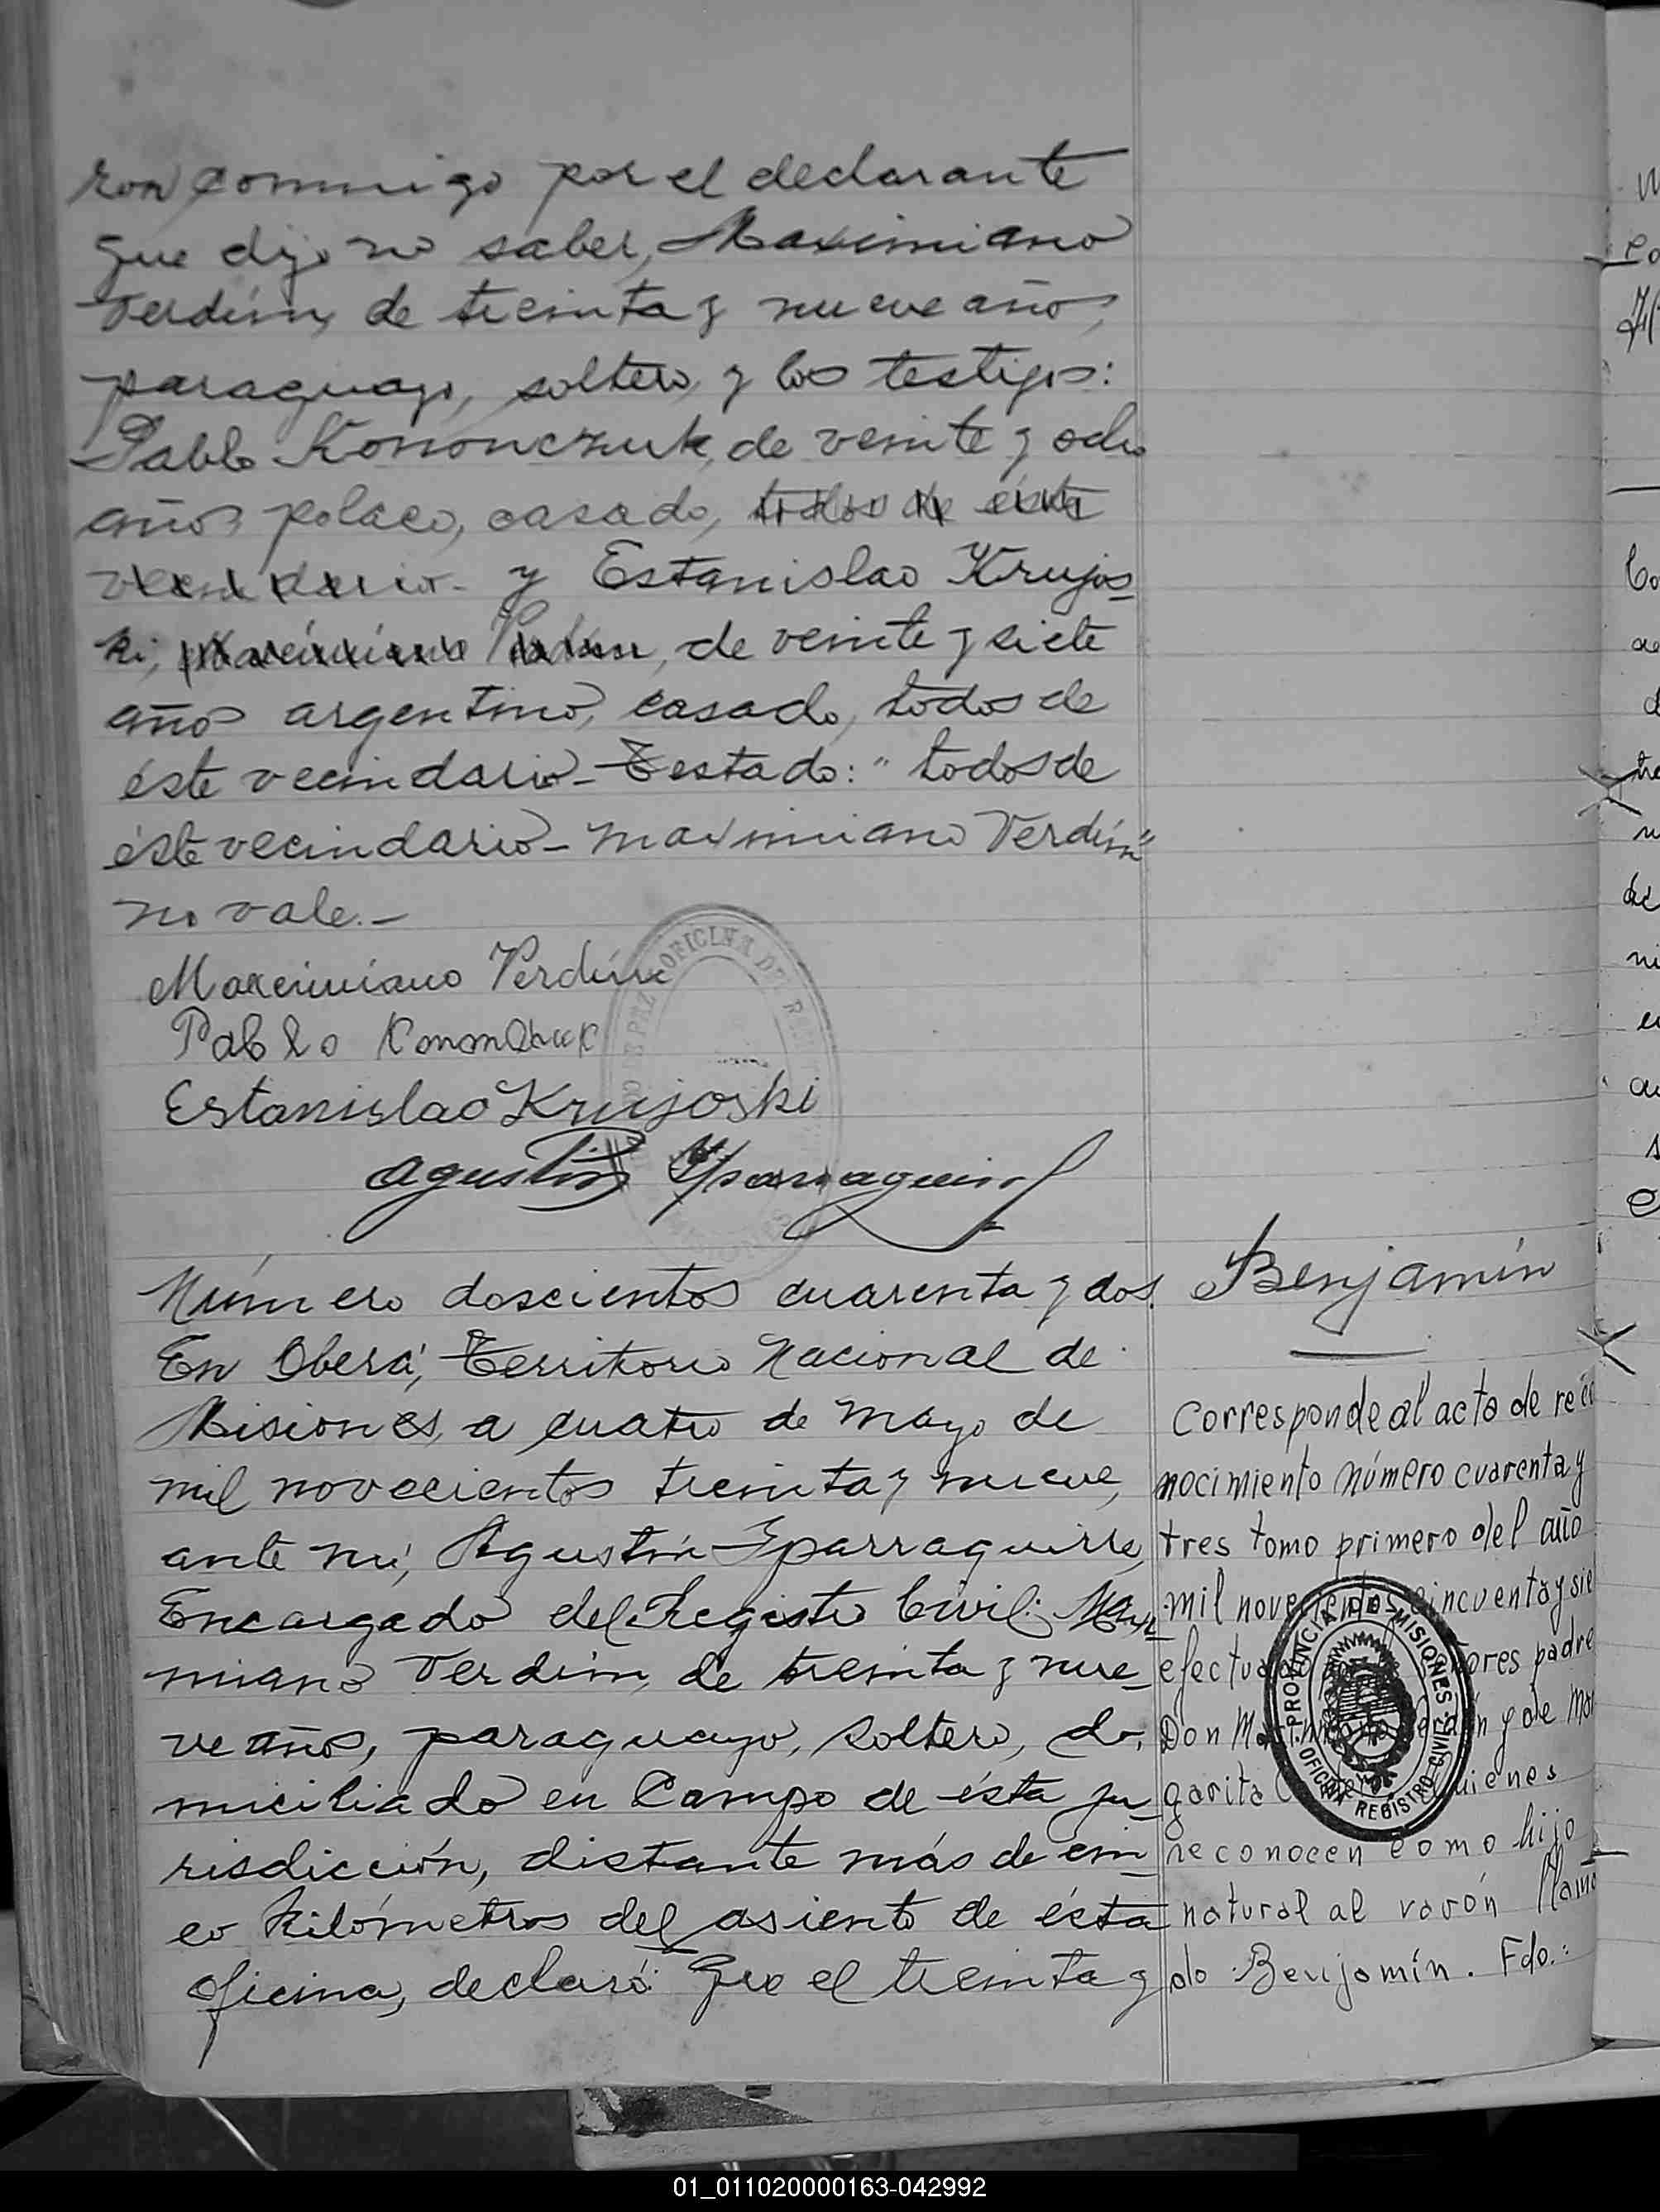 ron conmigo por el declarante
que dijo no saber, Maximiano
Verdún, de treinta y nueve años,
paraguayo, soltero, y los testigos:
Pablo Kononczuk, de veinte y ocho
años, polaco, casado, todos de éste
vecindario - y Estanislao Krujos-
ki, Maximiano Verdun, de veinte y siete
años argentino, casado, todos de
éste vecindario - Testado: "todos de
éste vecindario - Maximiano Verdún"
no vale.-
Maxcimiano Verdún
Pablo
Estanislao Krujoski
Agustín Yparraguirre
OFICINA DE
Número doscientos cuarenta y dos.
En Oberá, Territorio Nacional de
Misiones, a cuatro de Mayo de
mil novecientos treinta y nueve,
ante mí, Agustín Yparraguirre,
Encargado del Registro Civil: Maxi-
miano Verdún, de treinta y nue-
ve años, paraguayo, soltero, do-
miciliado en Campo de ésta ju-
risdicción, distante más de cin-
co kilómetros del asiento de ésta
oficina, declaró: Que el treinta y
Benjamín
Corresponde al acta de reco
nocimiento número cuarenta y
tres tomo primero del año
mil novecientos cincuenta y sie
padre
Don y de Mar
garita quienes
reconocen como hijo
natural al varón llama
do Benjamín. Fdo.:
PROVINCIA DE MISIONES
OFICINA REGISTRO CIVIL
01_011020000163-042992